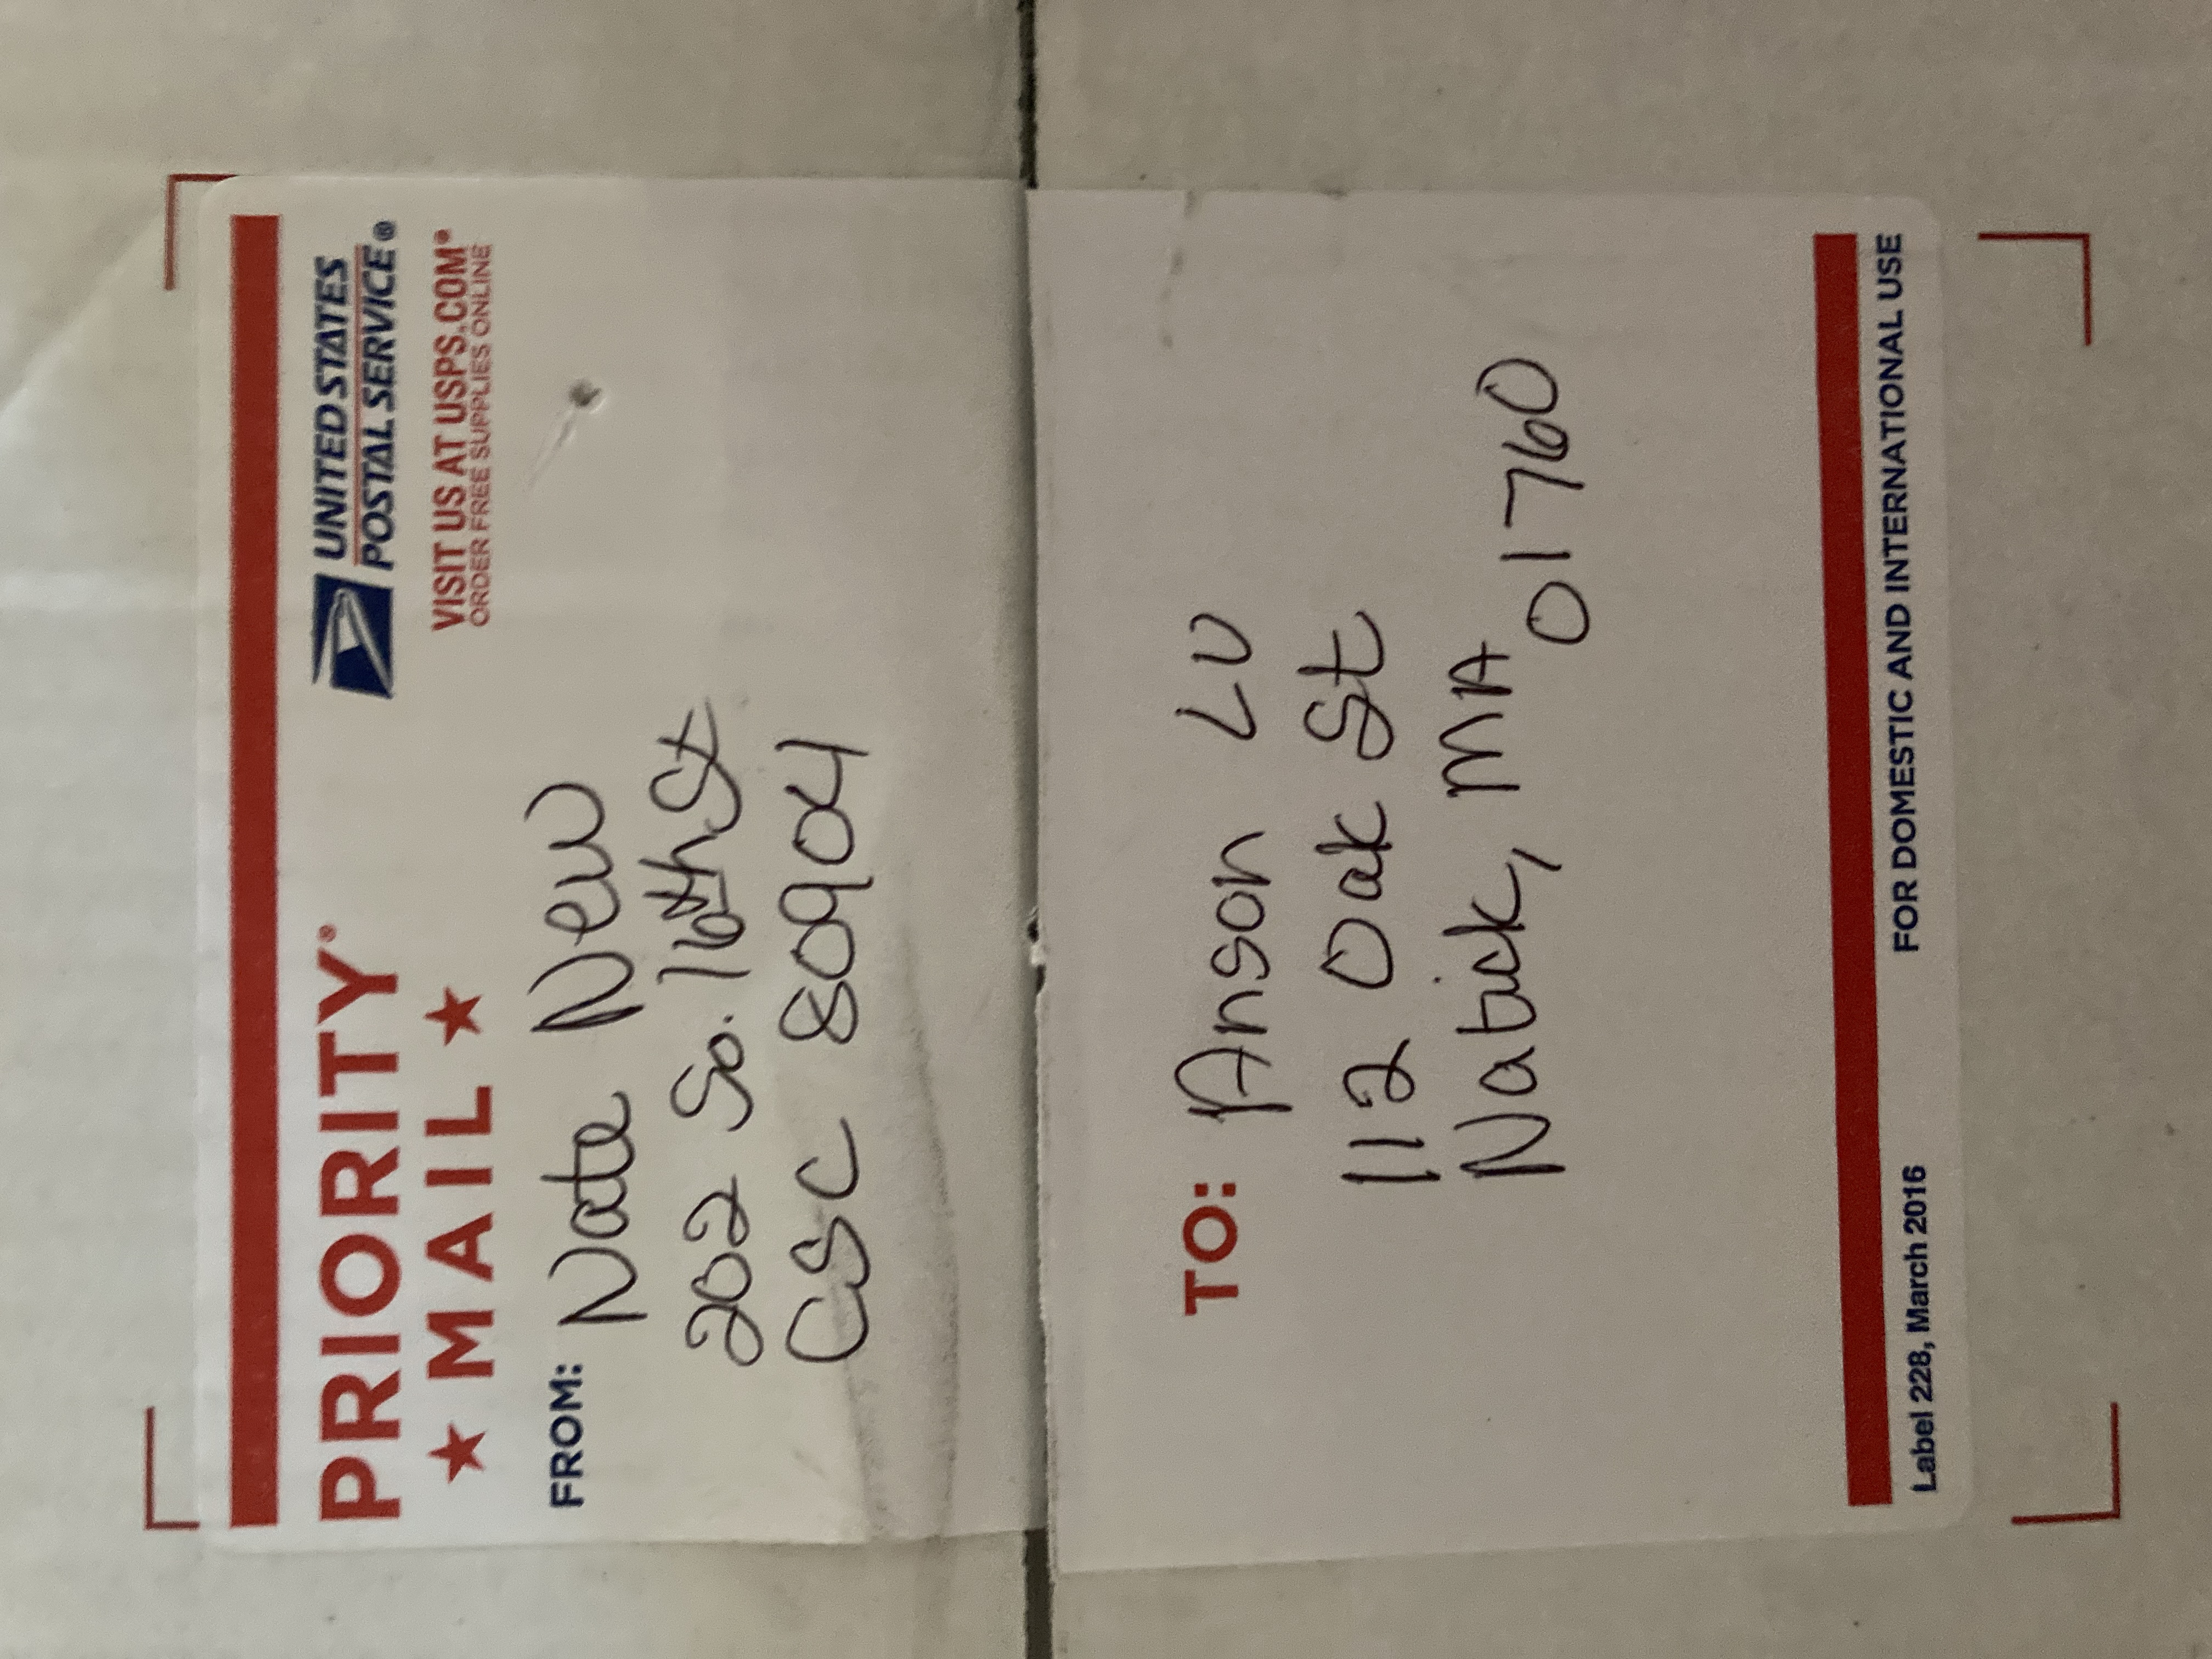 PRIORITY®
★ MAIL ★
UNITED STATES
POSTAL SERVICE®
VISIT US AT USPS.COM®
ORDER FREE SUPPLIES ONLINE
FROM: Nate New
202 So. 16th St
CSC 80904
TO: Anson LU
112 Oak St
Natick, MA
01760
Label 228, March 2016
FOR DOMESTIC AND INTERNATIONAL USE